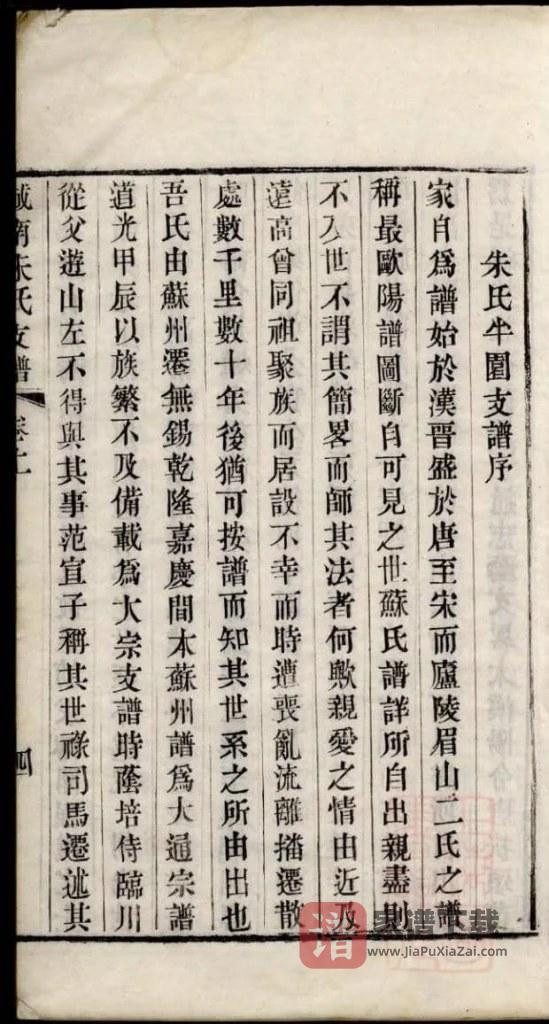 朱氏半園支譜序
家自爲譜始於漢晉盛於唐至宋而廬陵眉山二氏之譜
稱最歐陽譜圖斷自可見之世蘇氏譜詳所自出親盡則
不及世不謂其簡畧而師其法者何歟親愛之情由近及
遠高曾同祖聚族而居設不幸而時遭喪亂流離播遷散
處數千里數十年後猶可按譜而知其世系之所由出也
吾氏由蘇州遷無錫乾隆嘉慶間本蘇州譜爲大通宗譜
道光甲辰以族繁不及備載爲大宗支譜時蔭培侍臨川
從父遊山左不得與其事范宣子稱其世祿司馬遷述其
城南朱氏支譜 卷十一 四
譜 家谱下载
www.JiaPuXiaZai.com